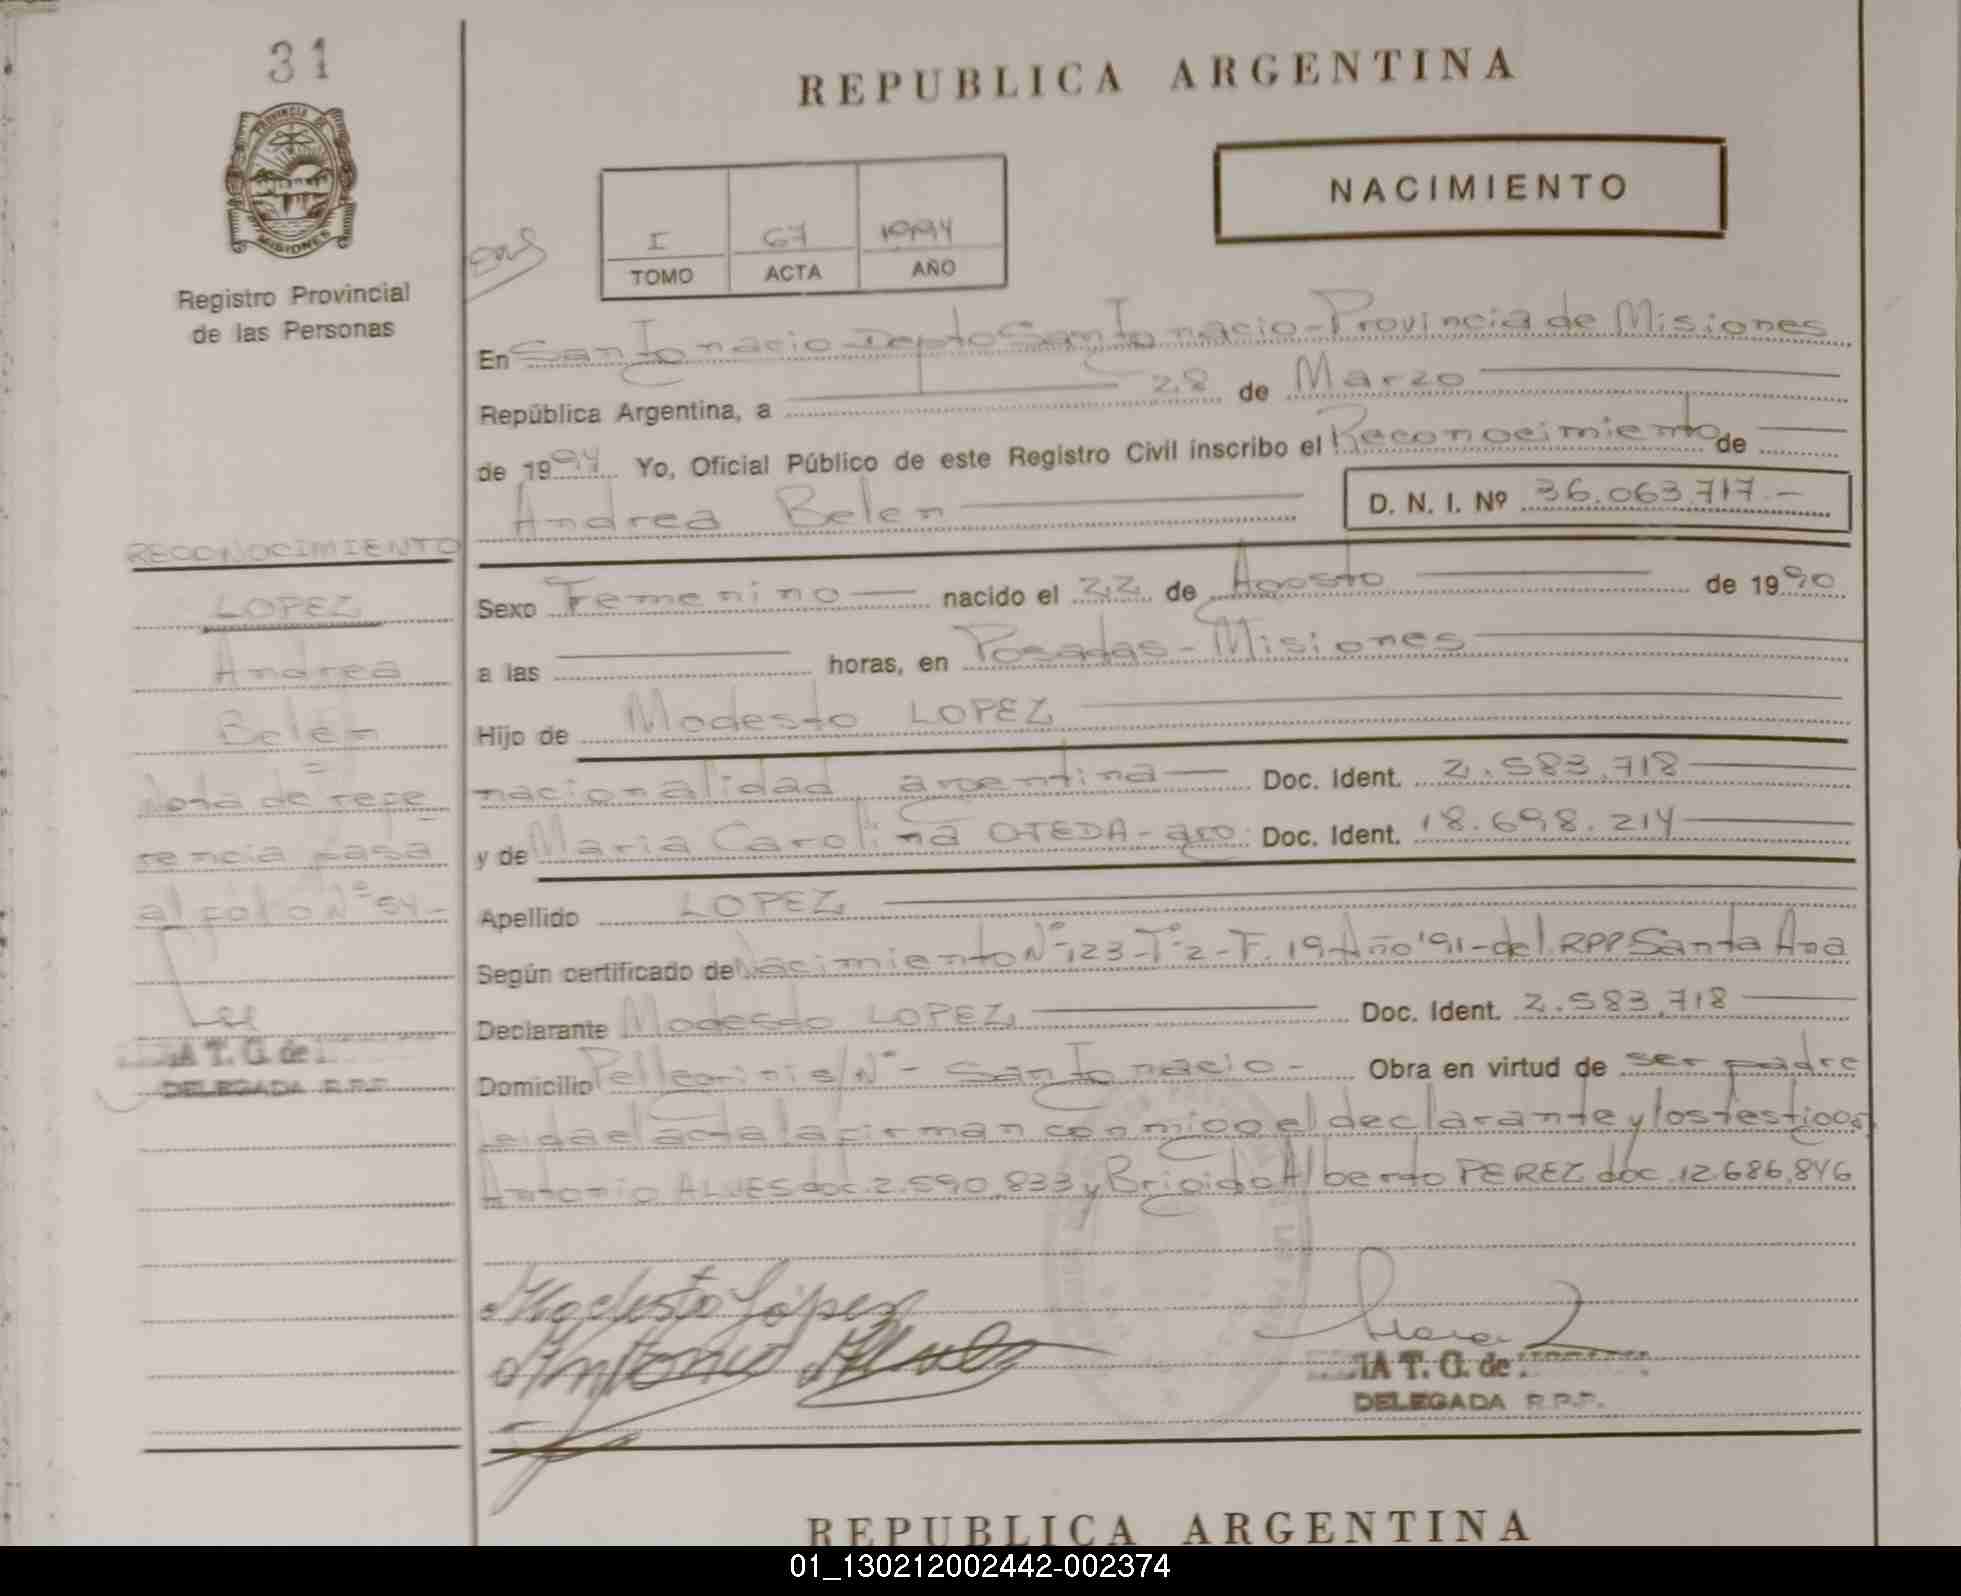 31
REPUBLICA ARGENTINA
PROVINCIA DE
MISIONES
Registro Provincial
de las Personas
NACIMIENTO
I 67 1994
TOMO ACTA AÑO
En San Ignacio - Depto San Ignacio - Provincia de Misiones
República Argentina, a 28 de Marzo
de 1994 Yo, Oficial Público de este Registro Civil inscribo el Reconocimiento de
Andrea Belen
D. N. I. Nº 36.063.717.-
RECONOCIMIENTO
LOPEZ
Andrea
Belen
Nota de refe
rencia pasa
al folio Nº 54-
A T. G. de
DELEGADA R.P.P.
Sexo Femenino nacido el 22 de Agosto de 1990
a las horas, en Posadas - Misiones
Hijo de Modesto LOPEZ
nacionalidad argentina Doc. Ident. 2.583.718
y de Maria Carolina OJEDA - arg. Doc. Ident. 18.698.214
Apellido LOPEZ
Según certificado de Nacimiento Nº 123-Tº2-F. 19 Año '91-del RPP Santa Ana
Declarante Modesto LOPEZ Doc. Ident. 2.583.718
Domicilio Pellegrini s/Nº - San Ignacio - Obra en virtud de ser padre
Leida el acta la firman conmigo el declarante y los testigos
Antonio ALVES doc. 2.590.833 y Brigido Alberto PEREZ doc. 12.686.846
Modesto López
Antonio Alves
A T. G. de
DELEGADA R.P.P.
REPUBLICA ARGENTINA
01_130212002442-002374